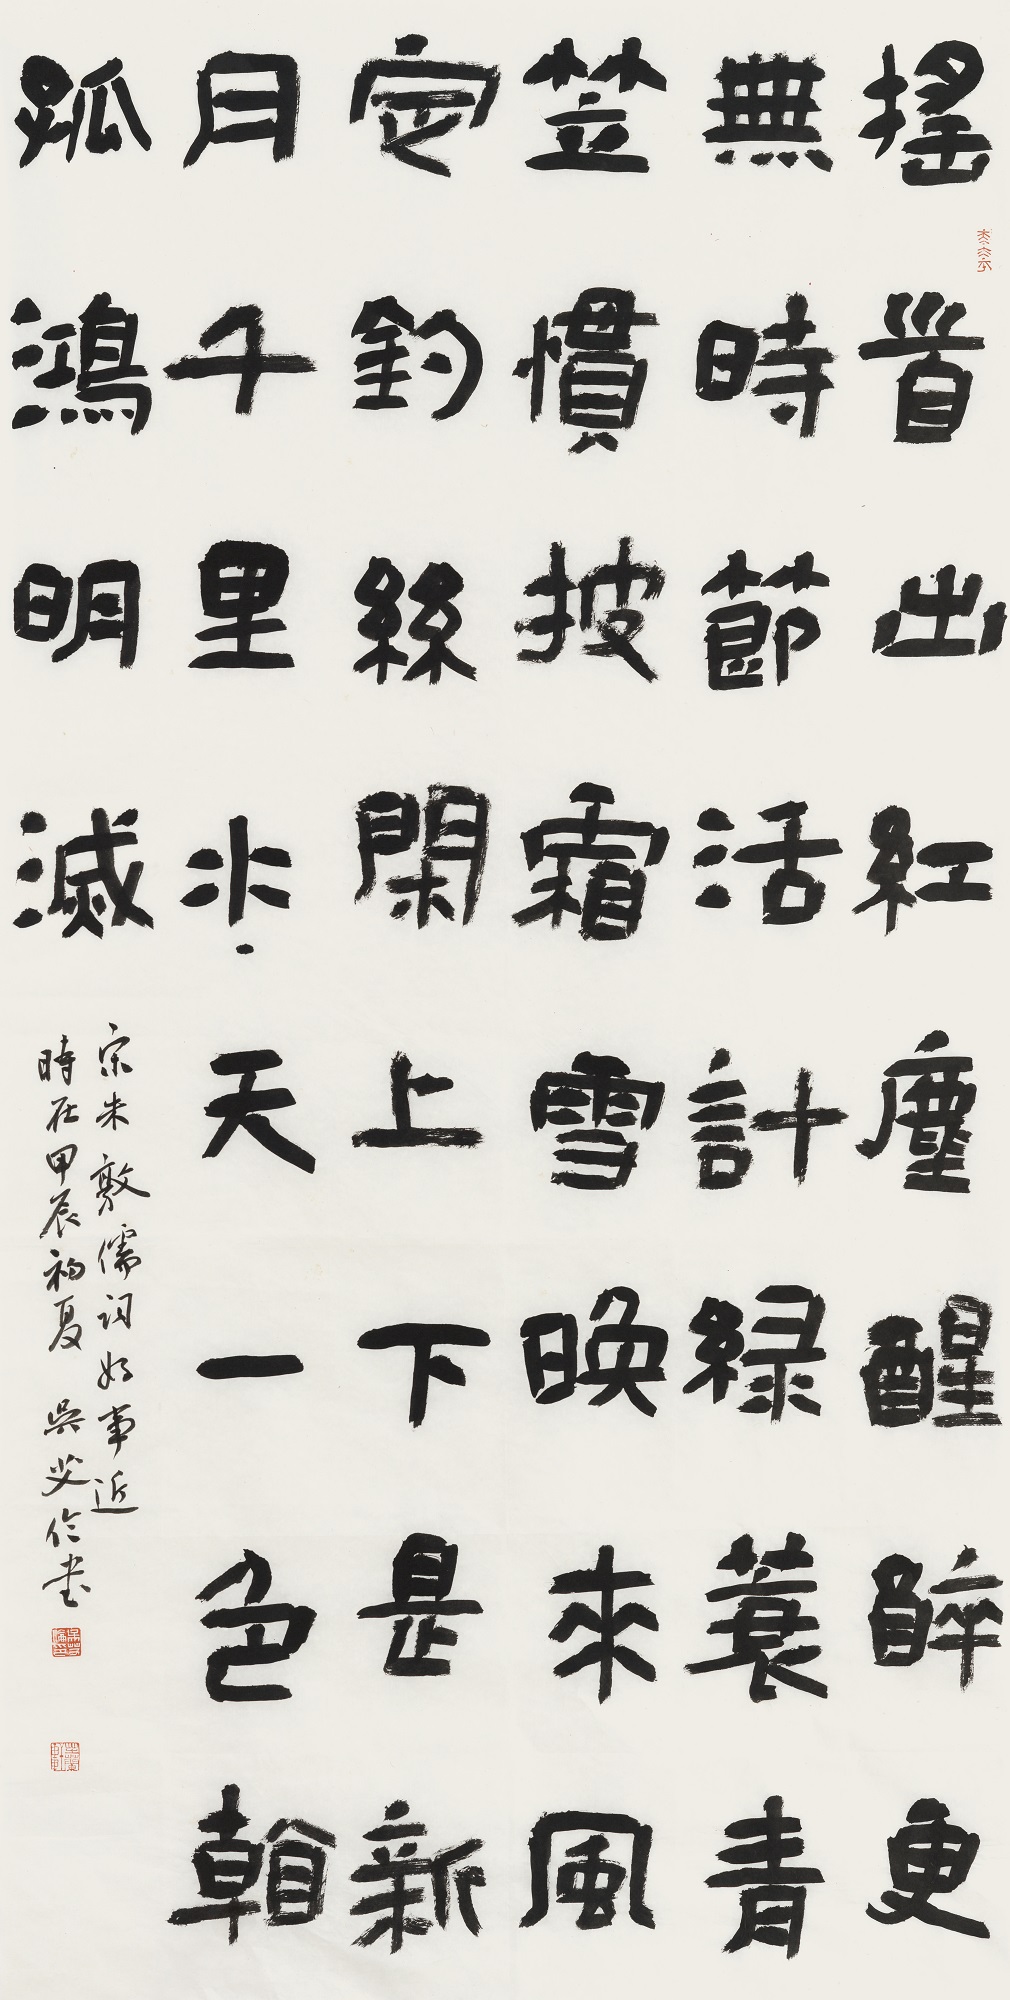 搖首出紅塵醒醉更
無時節活計綠蓑青
笠慣披霜雪晚來風
定釣絲閑上下是新
月千里水天一色看
孤鴻明滅
宋朱敦儒詞好事近
時在甲辰初夏 吳書